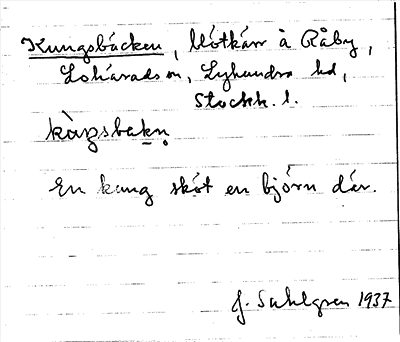 Kungsbäcken, blötkärr å Råby,
Lohärads sn, Lyhundra hd,
Stockh. l.
kàŋsbakn̥
En kung sköt en björn där.
J. Sahlgren 1937